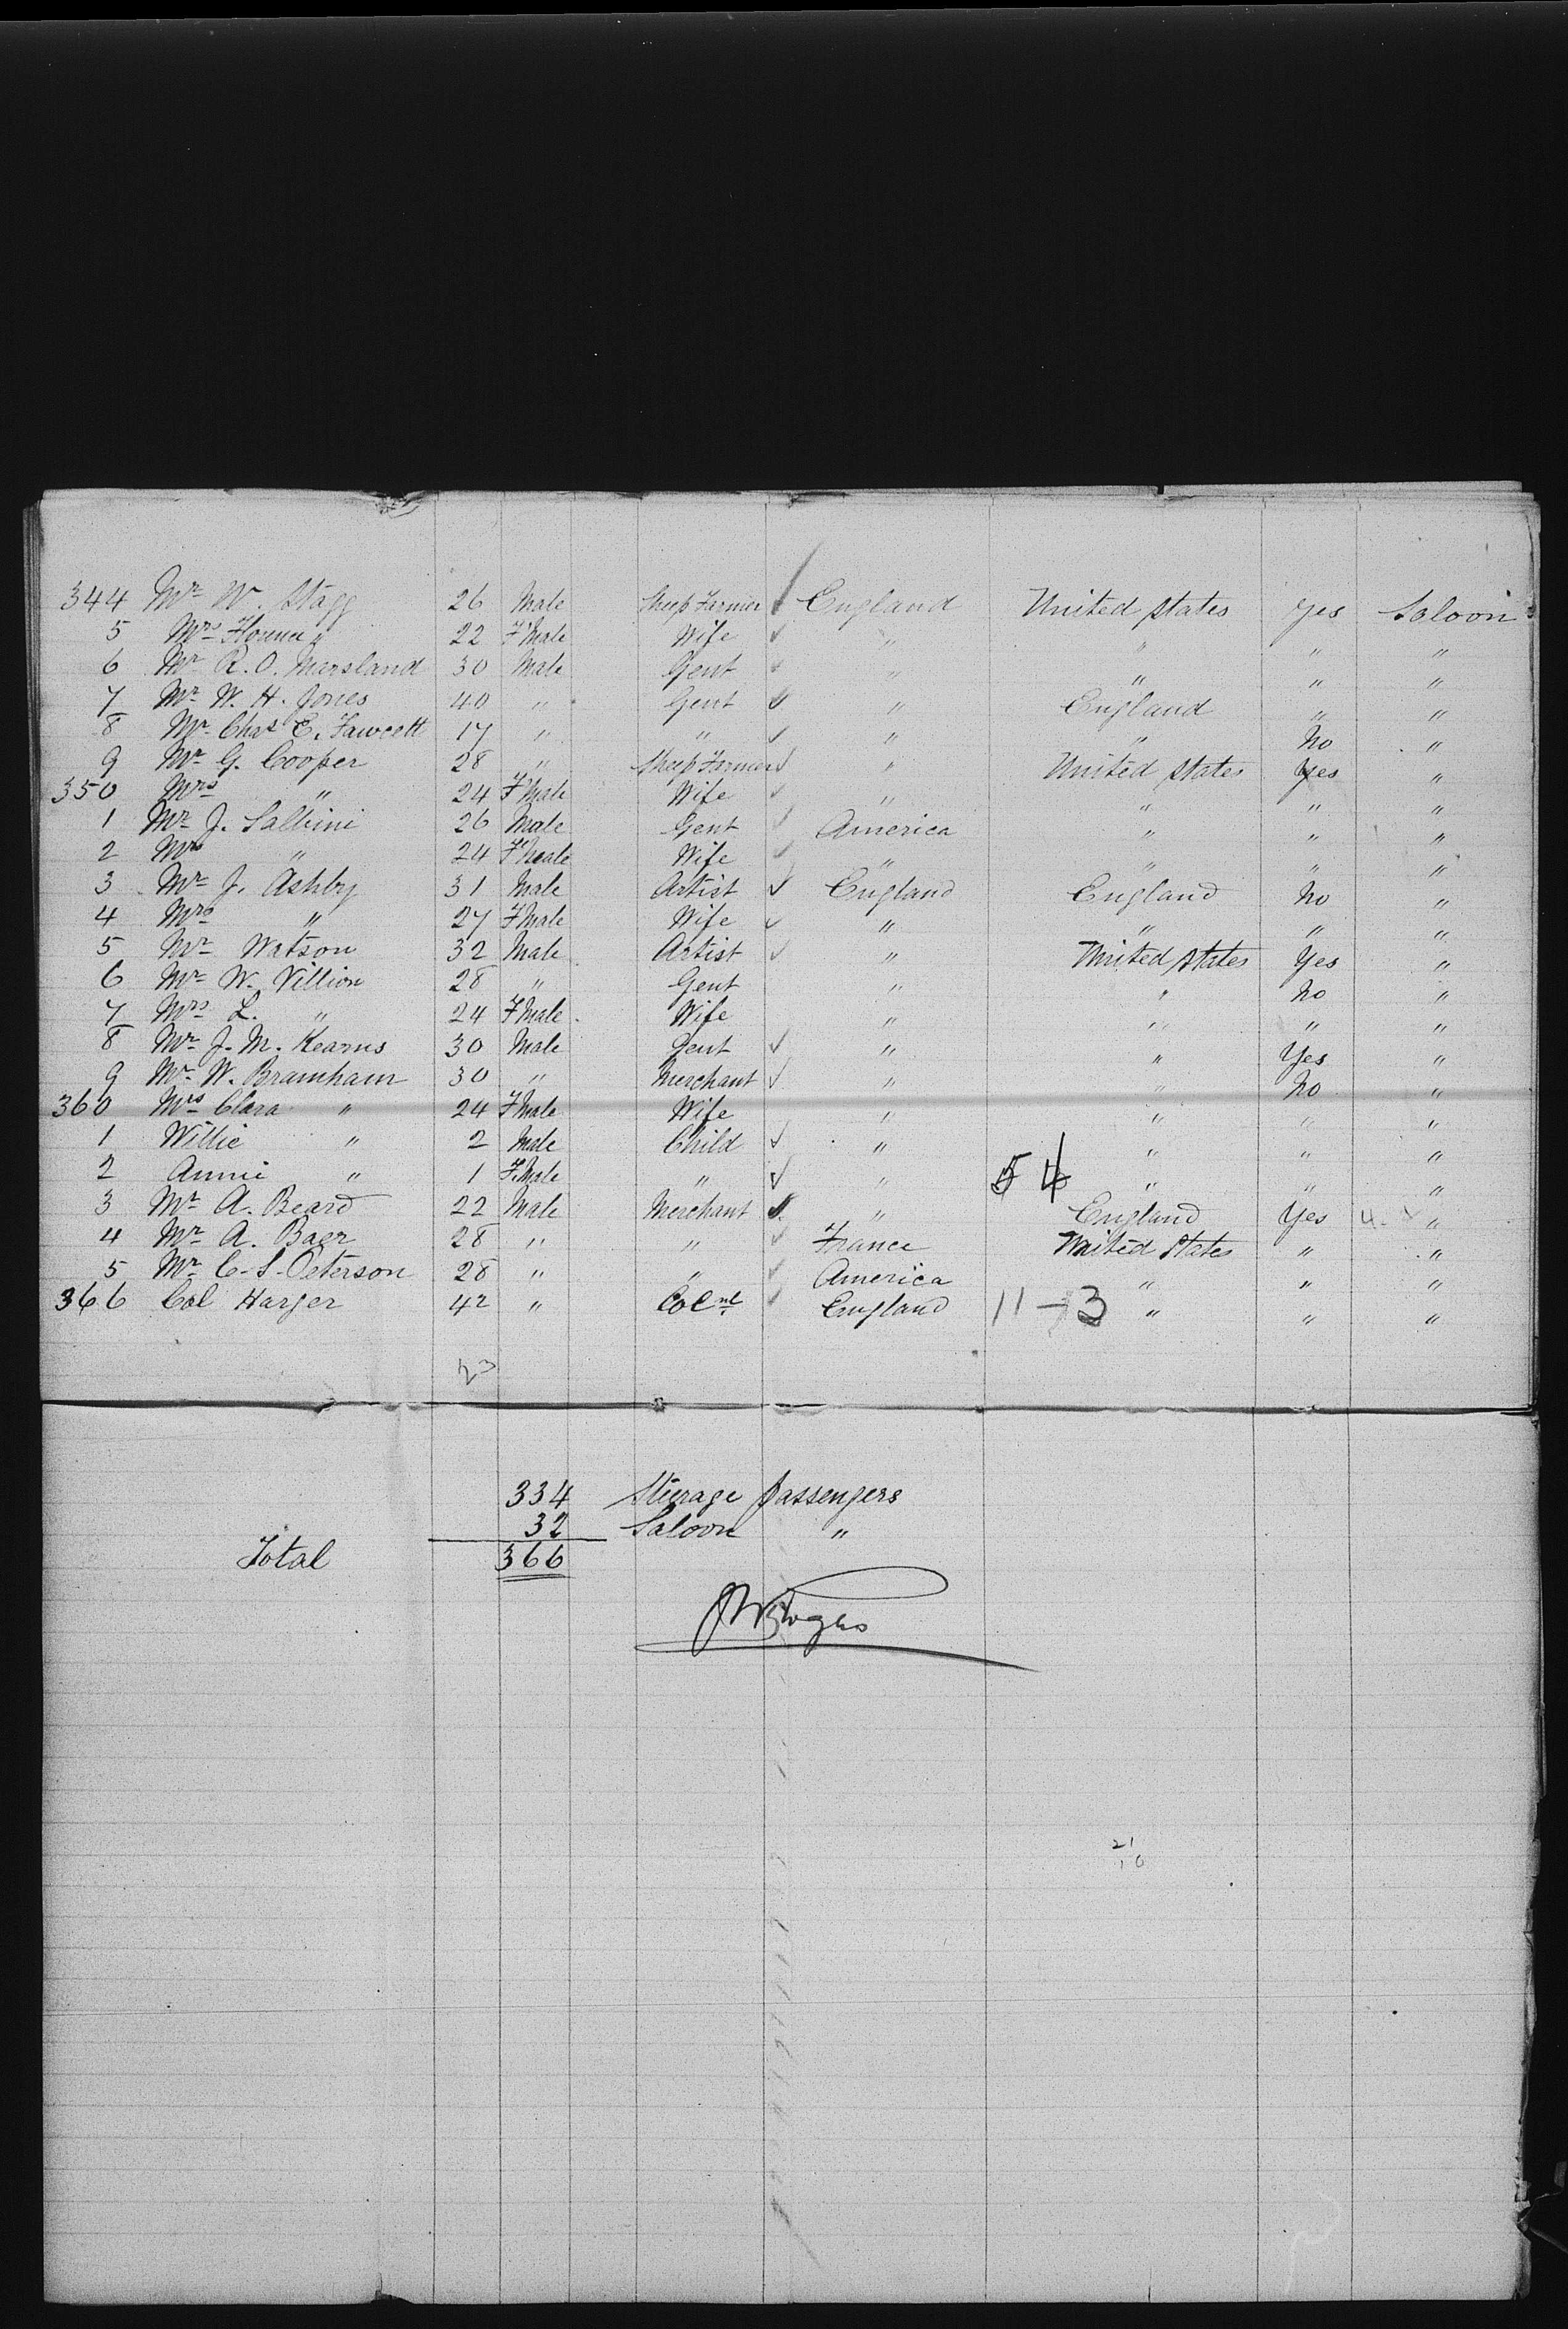 344 Mr W. Stagg 26 Male Sheep Farmer England United States Yes Saloon
5 Mrs " 22 F Male Wife " " " "
6 Mr R. O. Marsland 30 Male Gent " " " "
7 Mr W. H. Jones 40 " Gent " England " "
8 Mr Chas E. Fawcett 17 " " " " No "
9 Mr G. Cooper 28 " Sheep Farmer " United States Yes "
350 Mrs " 24 F Male Wife " " " "
1 Mr J. Salbini 26 Male Gent America " " "
2 Mrs " 24 F Male Wife " " " "
3 Mr J. Ashby 31 Male Artist England England No "
4 Mrs " 27 F Male Wife " " " "
5 Mr Watson 32 Male Artist " United States Yes "
6 Mr W. Villion 28 " Gent " " No "
7 Mrs L. " 24 F Male Wife " " " "
8 Mr J. M. Kearns 30 Male Gent " " Yes "
9 Mr W. Bramham 30 " Merchant " " No "
360 Mrs Clara " 24 F Male Wife " " " "
1 Willie " 2 Male Child " " " "
2 Annie " 1 F Male " " 54 " " "
3 Mr A. Beard 22 Male Merchant " England Yes "
4 Mr A. Baer 28 " " France United States " "
5 Mr C. S. Peterson 28 " " America " " "
366 Col Harger 42 " Colnl England 11-3 " " "
334 Steerage Passengers
32 Saloon "
Total 366
21
10